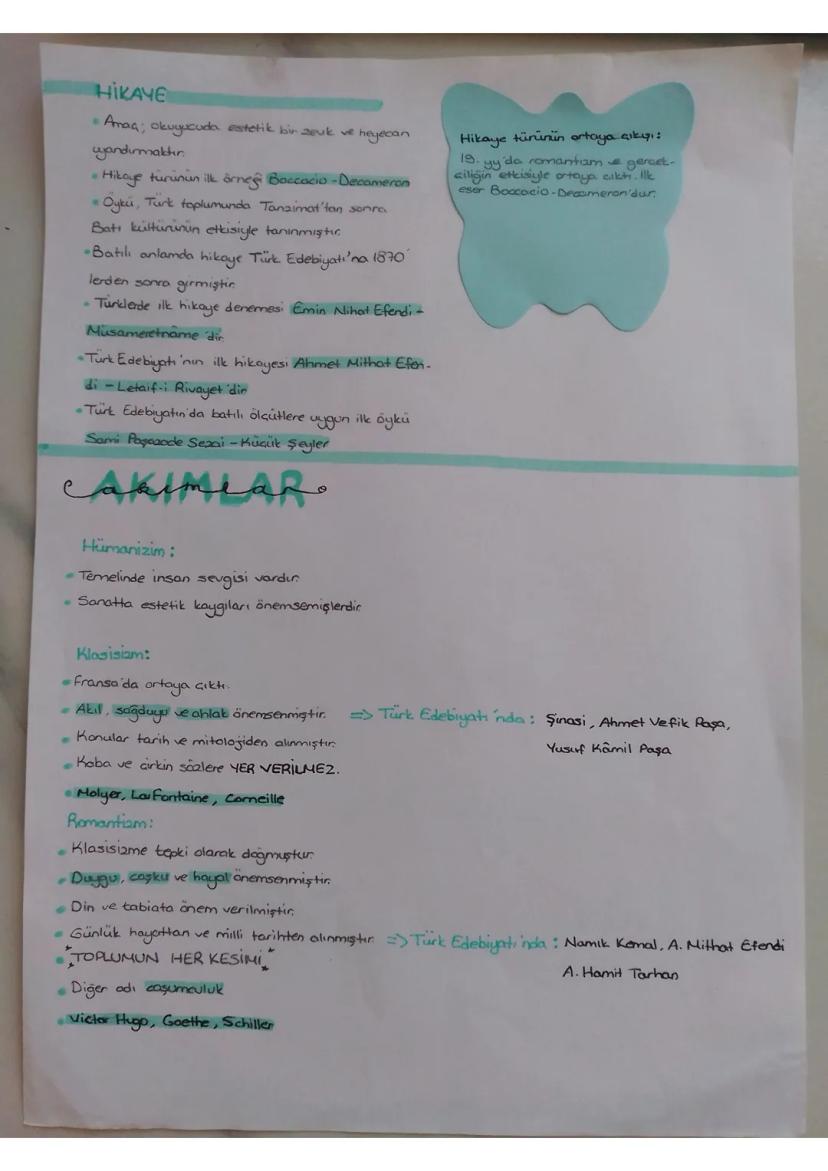 HİKAYE
• Amaç; okuyucuda estetik bir zevk ve heyecan
uyandırmaktır.
• Hikaye türünün ilk örneği Boccacio - Decameron
• Öykü, Türk toplumunda Tanzimat'tan sonra
Batı kültürünün etkisiyle tanınmıştır.
• Batılı anlamda hikaye Türk Edebiyatı'na 1870'
lerden sonra girmiştir.
• Türklerde ilk hikaye denemesi Emin Nihat Efendi -
Müsameretnâme'dir.
• Türk Edebiyatı'nın ilk hikayesi Ahmet Mithat Efen-
di - Letaif-i Rivayet'dir
• Türk Edebiyatın'da batılı ölçütlere uygun ilk öykü
Sami Paşazade Sezai - Küçük Şeyler
Hikaye türünün ortaya çıkışı:
19. yy'da romantizm ve gerçek-
çiliğin etkisiyle ortaya çıktı. İlk
eser Boccacio-Decameron'dur.
AKIMLAR
akımlar
Hümanizim:
• Temelinde insan sevgisi vardır.
• Sanatta estetik kaygıları önemsemişlerdir.
Klasisizm:
• Fransa'da ortaya çıktı.
• Akıl, sağduyu ve ahlak önemsenmiştir. => Türk Edebiyatı'nda: Şinasi, Ahmet Vefik Paşa,
Yusuf Kâmil Paşa
• Konular tarih ve mitolojiden alınmıştır.
• Kaba ve çirkin sözlere YER VERİLMEZ.
• Molyer, La Fontaine, Corneille
Romantizm:
• Klasisizme tepki olarak doğmuştur.
• Duygu, coşku ve hayal önemsenmiştir.
• Din ve tabiata önem verilmiştir.
• Günlük hayattan ve milli tarihten alınmıştır. => Türk Edebiyatı'nda: Namık Kemal, A. Mithat Efendi
A. Hamit Tarhan
• TOPLUMUN HER KESİMİ
• Diğer adı coşumculuk
• Victor Hugo, Goethe, Schiller